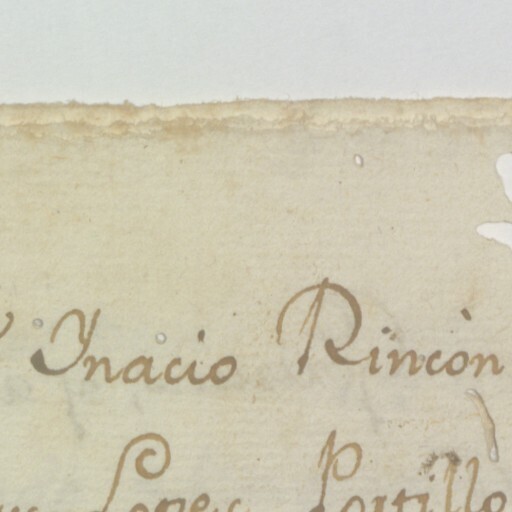 Ignacio Rincòn
Lopez Portillo